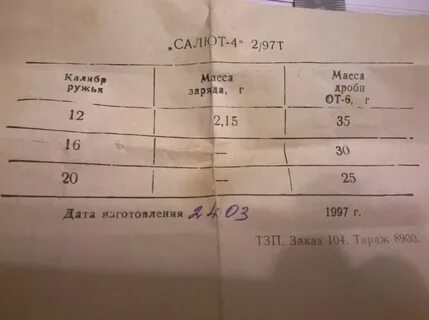 „САЛЮТ-4“ 2/97Т
Калибр ружья Масса заряда, г Масса дроби ОТ-6, г
12 2,15 35
16 — 30
20 — 25
Дата изготовления 24 03 1997 г.
ТЗП. Заказ 104. Тираж 8900.